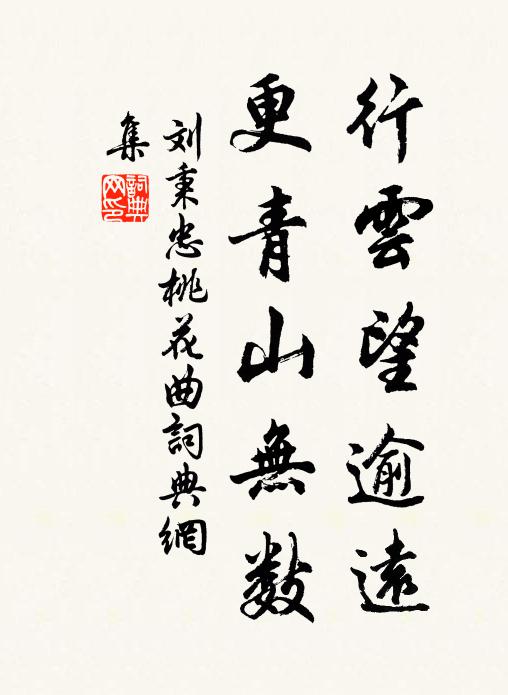 行雲望逾遠
更青山無数
刘秉忠桃花曲詞典網
集
詞典
网印